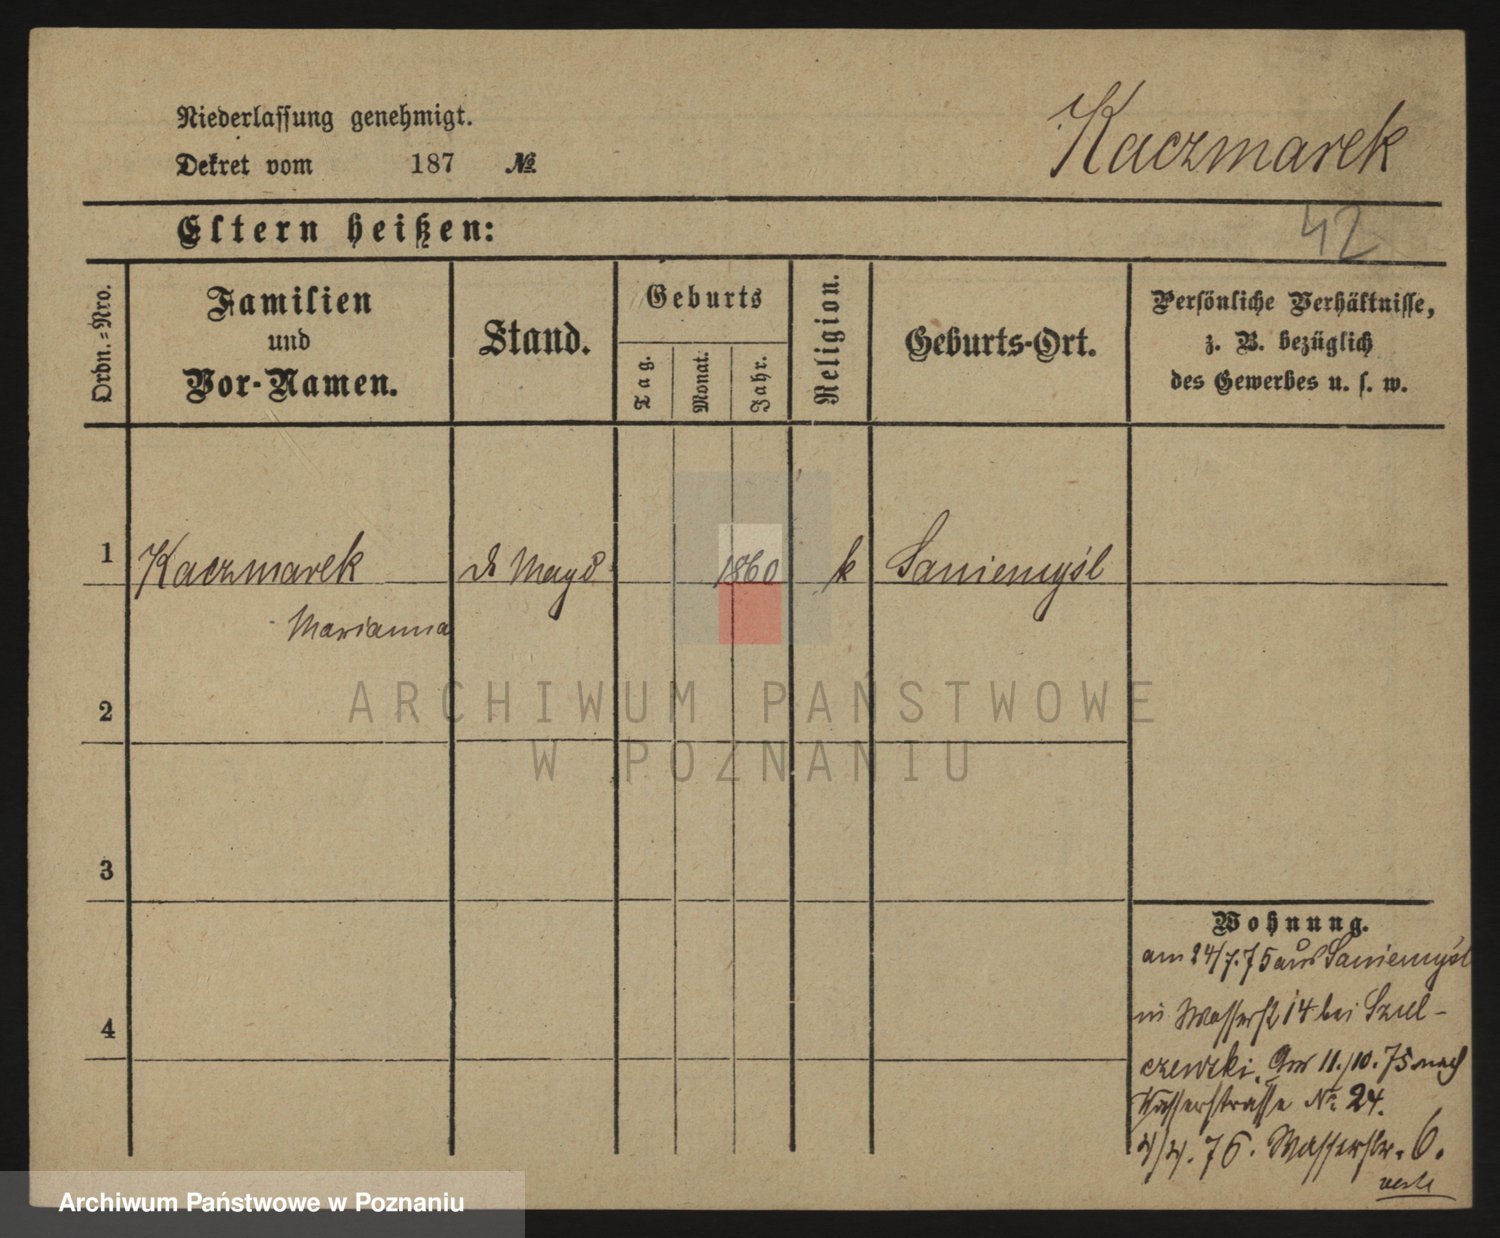 Niederlassung genehmigt.
Dekret vom 187 №
Kaczmarek
42
Eltern heißen:
Ordn.-Nro.
Familien
und
Vor-Namen.
Stand.
Geburts
Tag.
Monat.
Jahr.
Religion.
Geburts-Ort.
Persönliche Verhältnisse,
z. B. bezüglich
des Gewerbes u. s. w.
1 Kaczmarek d. Magd 1860 k Saniemyśl
Marianna
ARCHIWUM PAŃSTWOWE
W POZNANIU
2
3
4
Wohnung.
am 24/7.75 aus Saniemyśl
in Wasserst 14 bei Szul-
czewski. Am 11./10.75 nach
Wasserstrasse № 24.
4/4.76. Wasserstr. 6.
verte
Archiwum Państwowe w Poznaniu